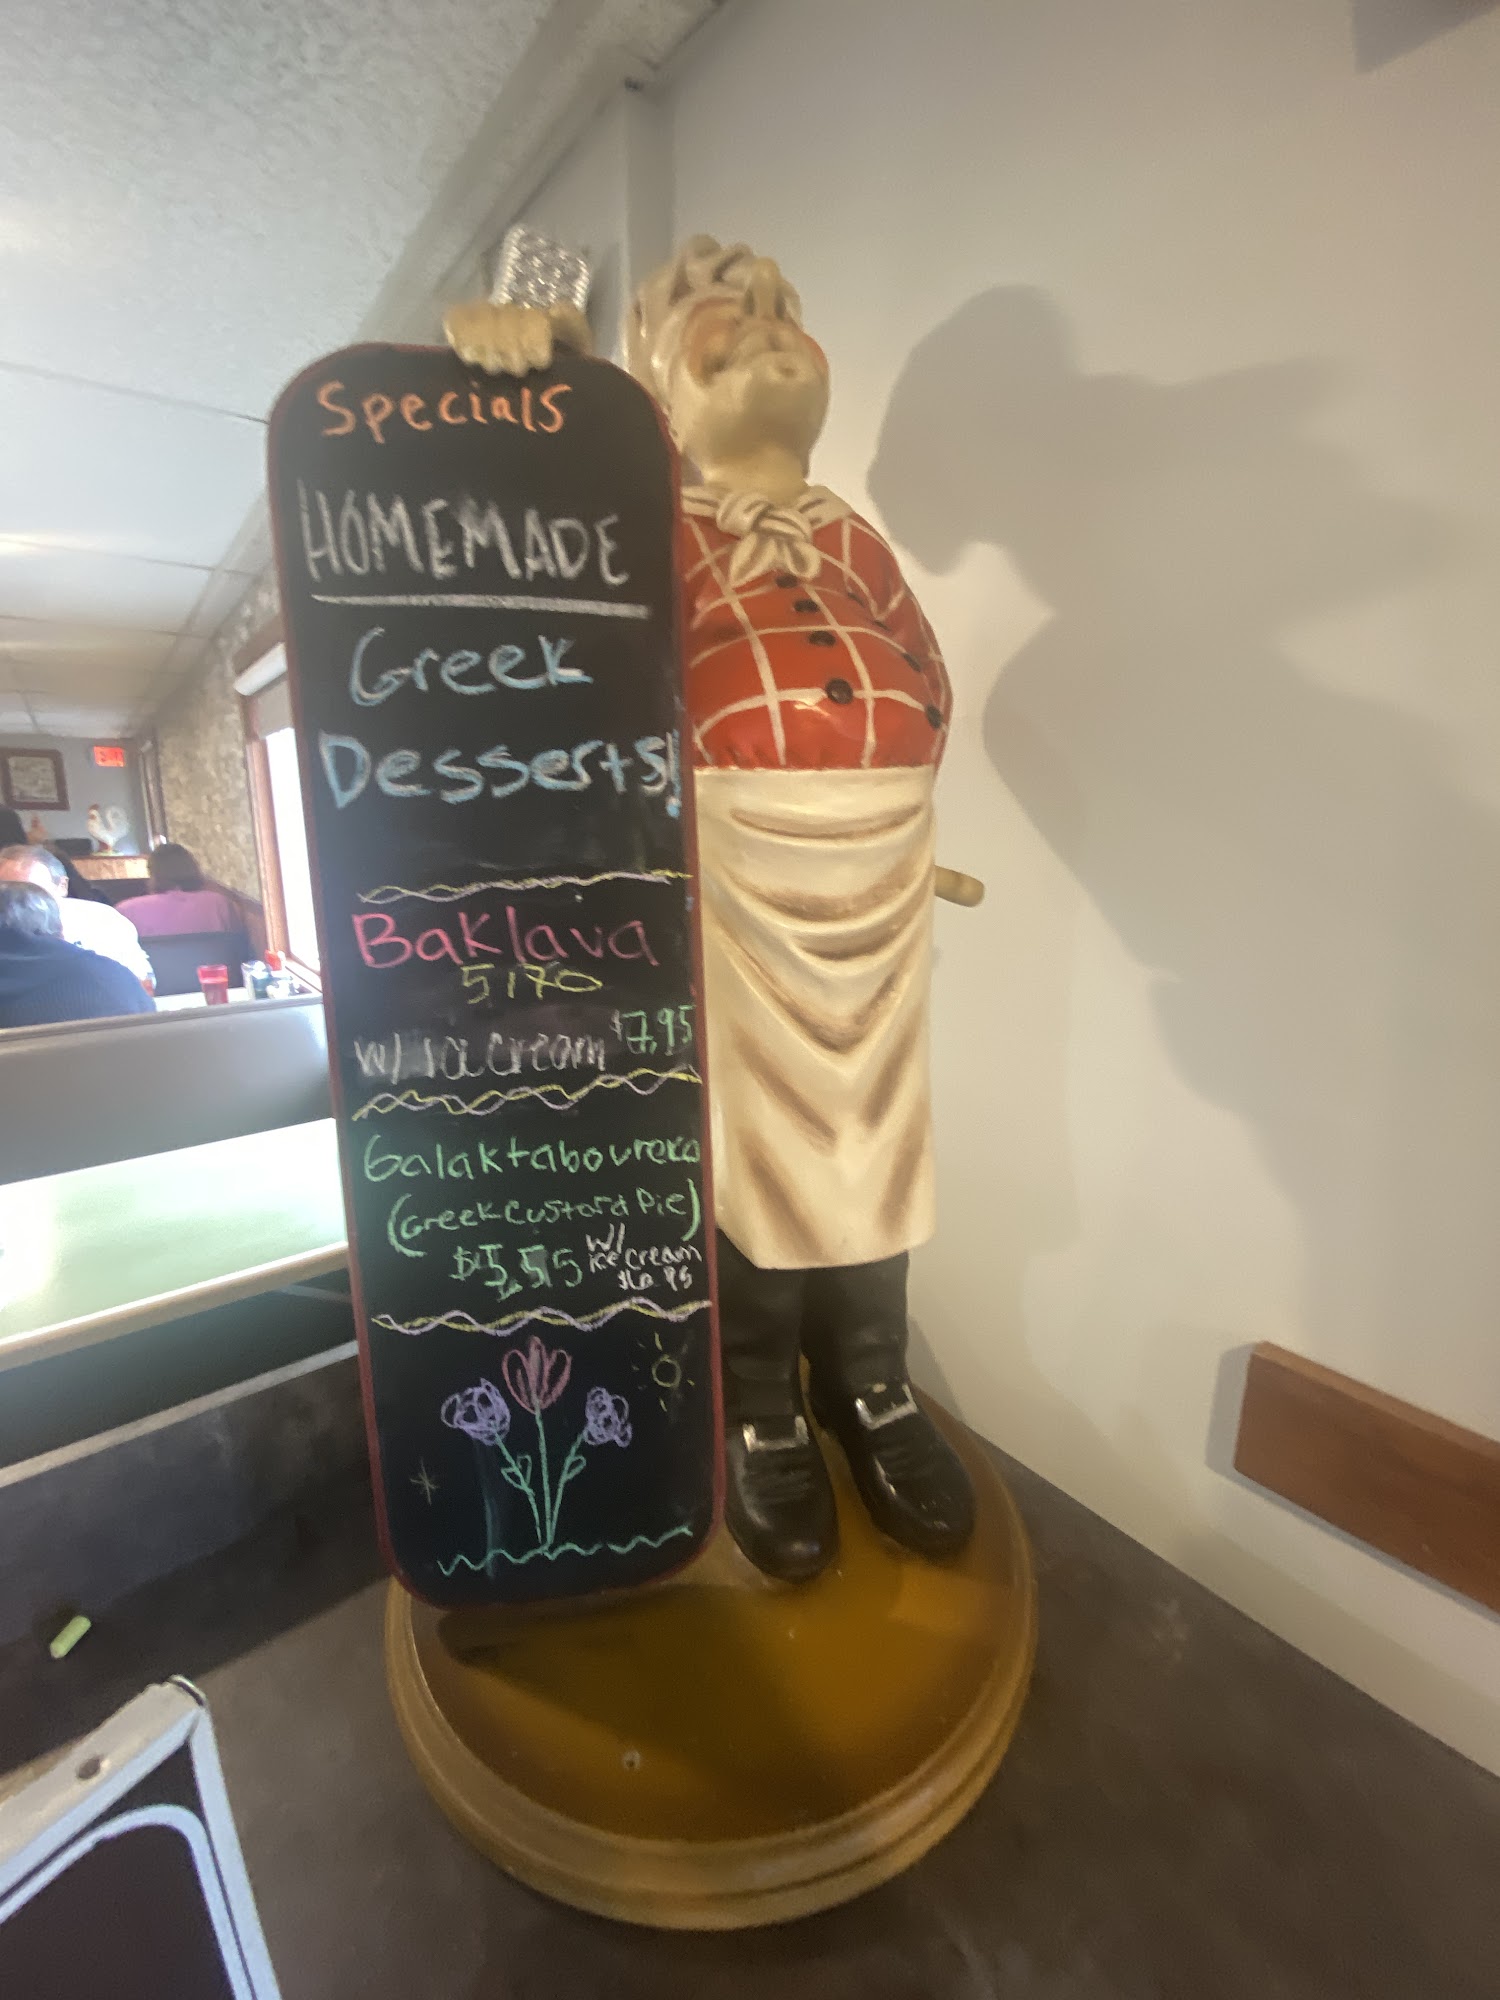 Specials
HOMEMADE
Greek
Desserts!
Baklava
5.70
w/ ice cream $7.95
Galaktaboureko
(Greek Custard Pie)
$5.55 w/ ice cream $6.95